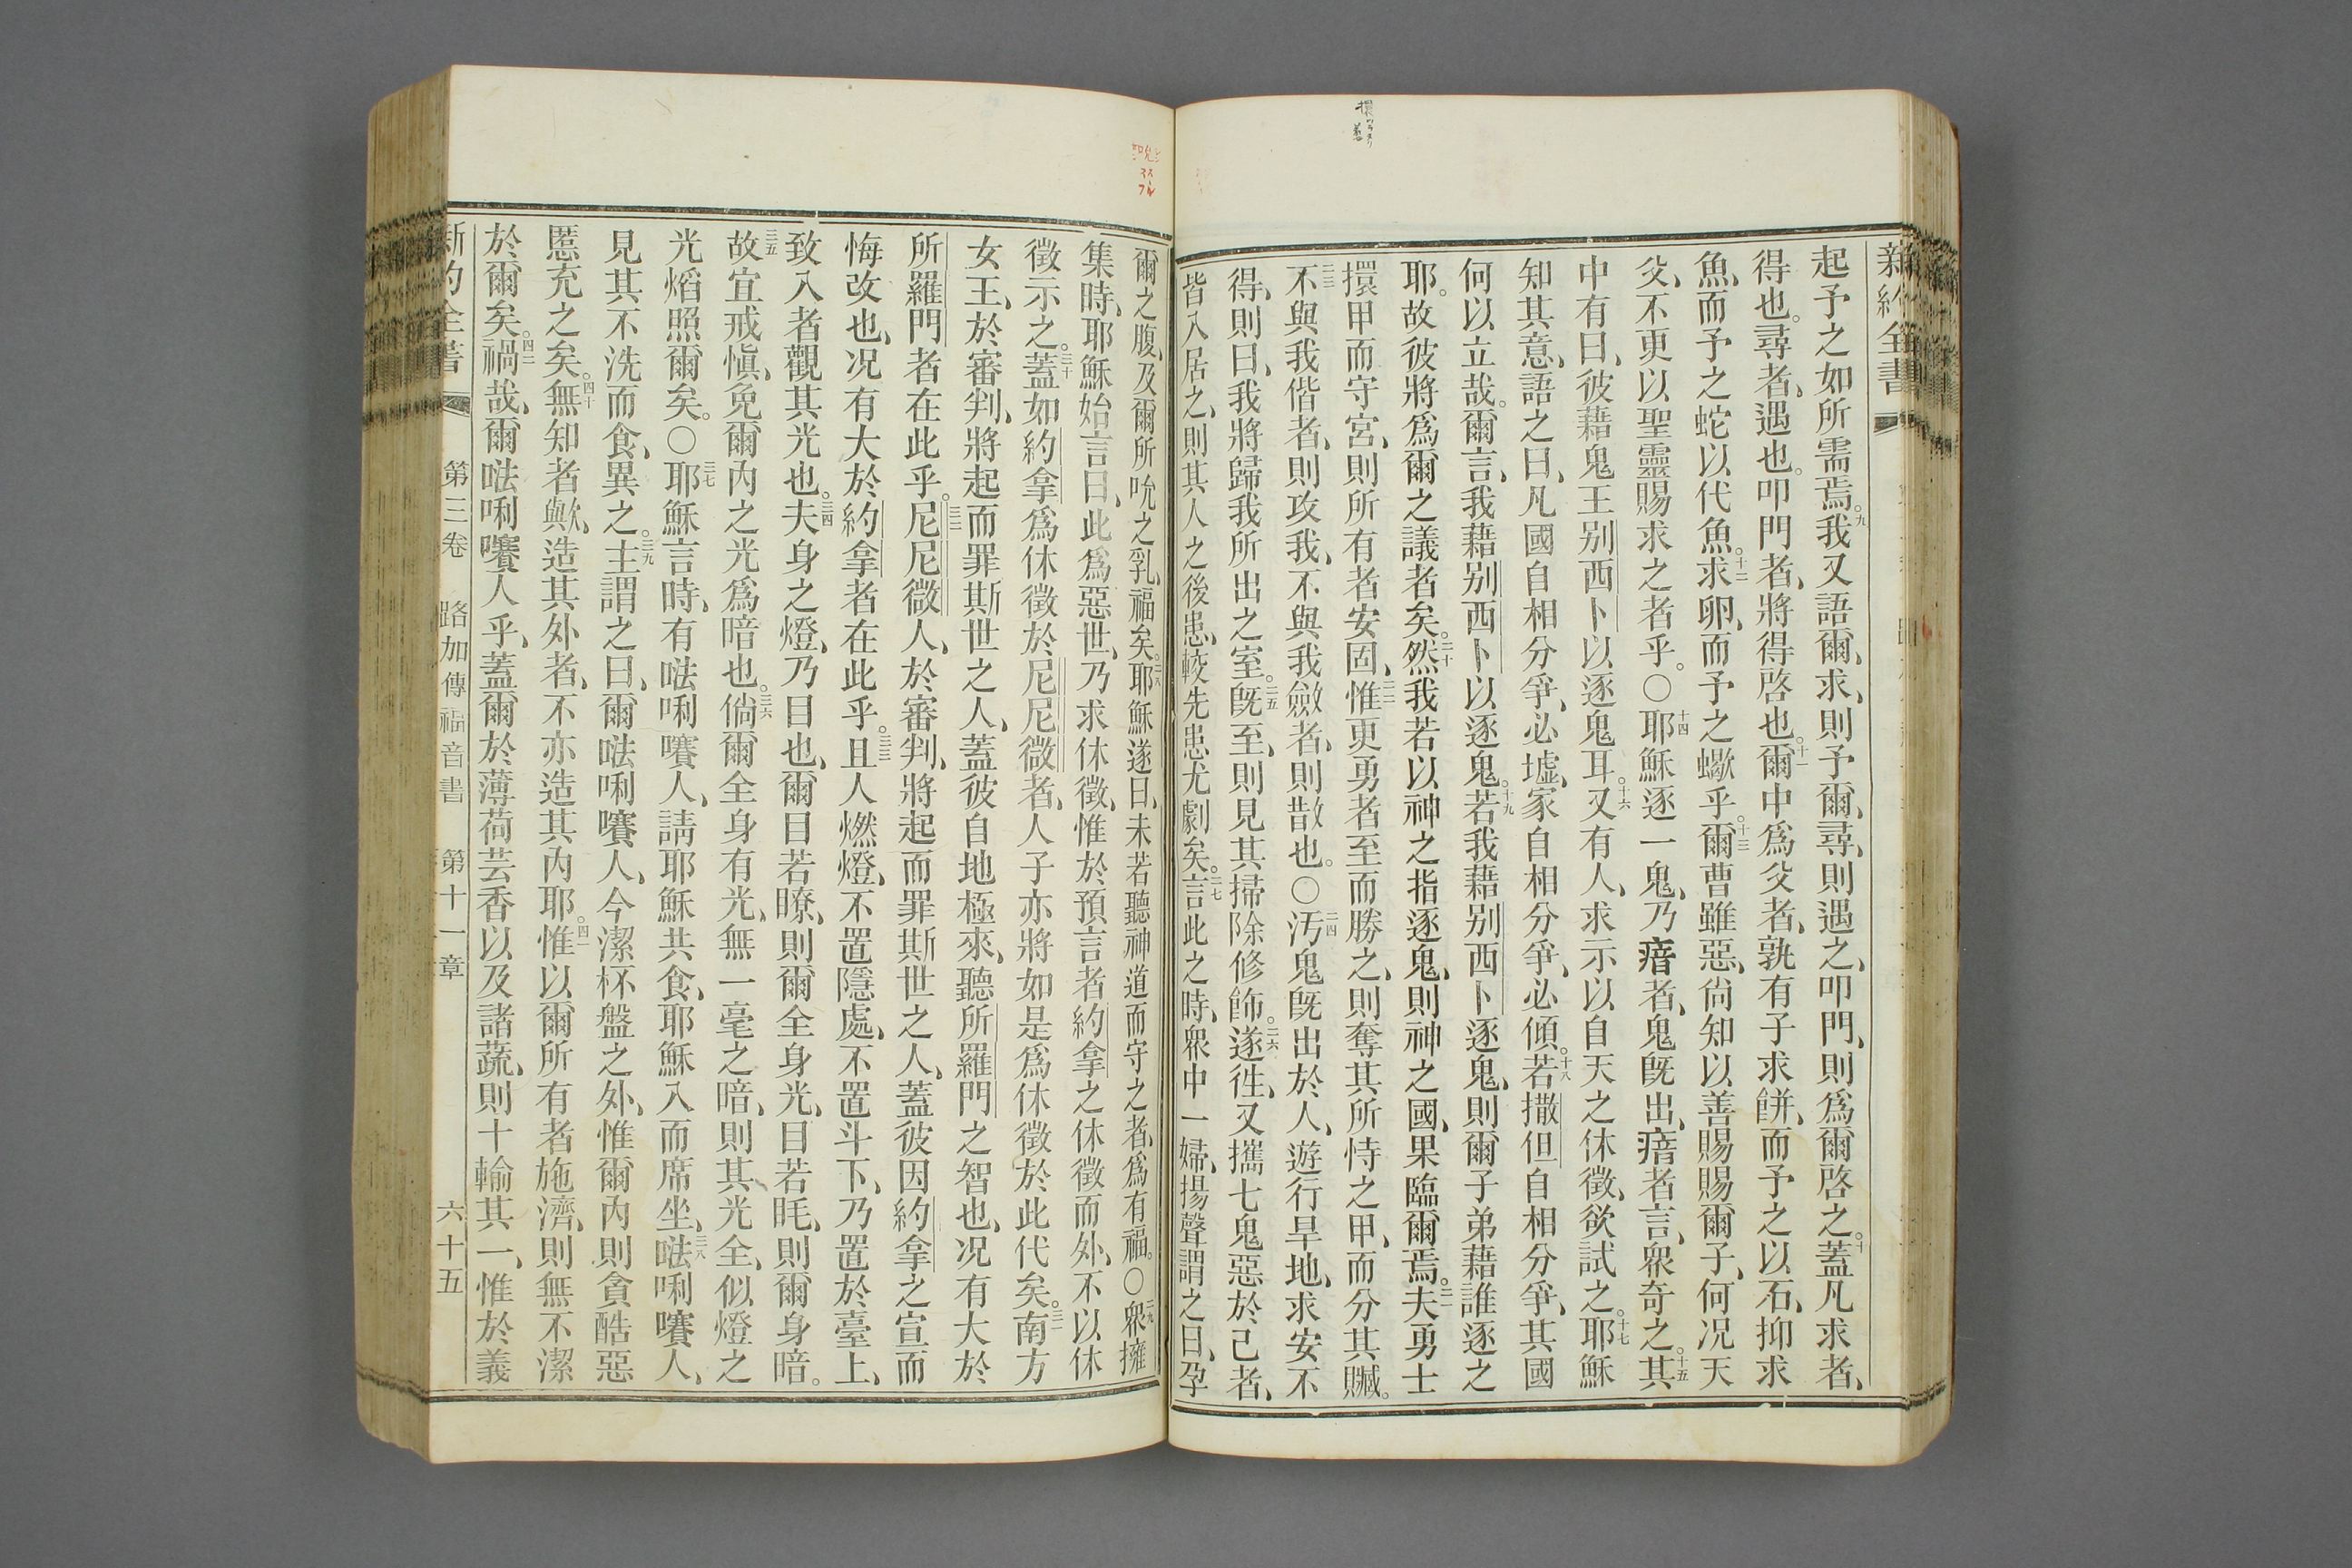 新約全書
起予之如所需焉。九我又語爾、求、則予爾、尋、則遇之、叩門、則爲爾啓之。十蓋凡求者、
得也。尋者、遇也。叩門者、將得啓也。十一爾中爲父者、孰有子求餅、而予之以石、抑求
魚、而予之蛇以代魚。十二求卵、而予之蠍乎。十三爾曹雖惡、尙知以善賜賜爾子、何况天
父、不更以聖靈賜求之者乎。〇十四耶穌逐一鬼、乃瘖者、鬼旣出、瘖者言、衆奇之。十五其
中有曰、彼藉鬼王別西卜以逐鬼耳。十六又有人、求示以自天之休徵、欲試之。十七耶穌
知其意、語之曰、凡國自相分爭、必墟、家自相分爭、必傾。十八若撒但自相分爭、其國
何以立哉。爾言、我藉別西卜以逐鬼。十九若我藉別西卜逐鬼、則爾子弟藉誰逐之
耶。故彼將爲爾之議者矣。二十然我若以神之指逐鬼、則神之國、果臨爾焉。二一夫勇士
擐甲而守宮、則所有者安固、二二惟更勇者至而勝之、則奪其所恃之甲、而分其贓。
二三不與我偕者、則攻我、不與我斂者、則散也。〇二四汚鬼旣出於人、遊行旱地、求安不
得、則曰、我將歸我所出之室。二五旣至、則見其掃除修飾。二六遂徃、又攜七鬼惡於己者、
皆入居之、則其人之後患、較先患尤劇矣。二七言此之時、衆中一婦、揚聲謂之曰、孕
爾之腹、及爾所吮之乳、福矣。二八耶穌遂曰、未若聽神道而守之者、爲有福。〇二九衆擁
集時、耶穌始言曰、此爲惡世、乃求休徵、惟於預言者約拿之休徵而外、不以休
徵示之。三十蓋如約拿爲休徵於尼尼微者、人子亦將如是爲休徵於此代矣。三一南方
女王、於審判、將起而罪斯世之人、蓋彼自地極來、聽所羅門之智也、况有大於
所羅門者在此乎。三二尼尼微人、於審判、將起而罪斯世之人、蓋彼因約拿之宣而
悔改也、况有大於約拿者在此乎。三三且人燃燈、不置隱處、不置斗下、乃置於臺上、
致入者觀其光也。三四夫身之燈、乃目也、爾目若瞭、則爾全身光、目若眊、則爾身暗。
三五故宜戒愼、免爾內之光爲暗也。三六倘爾全身有光、無一毫之暗、則其光全、似燈之
光熖照爾矣。〇三七耶穌言時、有㗲唎㘔人、請耶穌共食、耶穌入而席坐、三八㗲唎㘔人、
見其不洗而食、異之。三九主謂之曰、爾㗲唎㘔人、今潔杯盤之外、惟爾內則貪酷惡
慝充之矣。四十無知者歟、造其外者、不亦造其內耶。四一惟以爾所有者施濟、則無不潔
於爾矣。四二禍哉、爾㗲唎㘔人乎、蓋爾於薄荷芸香以及諸蔬、則十輸其一、惟於義
新約全書 第三卷 路加傳福音書 第十一章 六十五